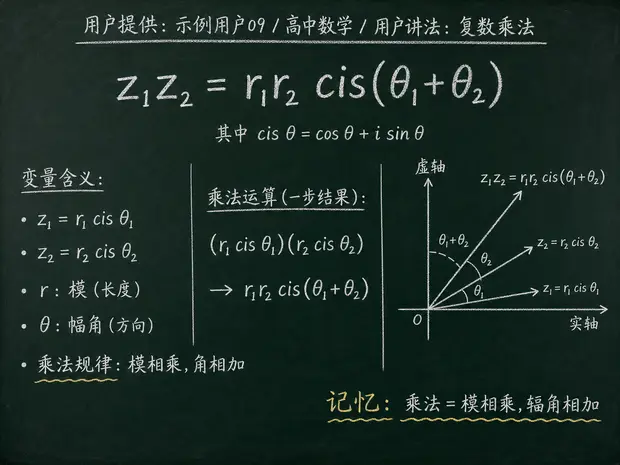 用户提供: 示例用户09 / 高中数学 / 用户讲法: 复数乘法
z₁z₂ = r₁r₂ cis(θ₁+θ₂)
其中 cis θ = cos θ + i sin θ
变量含义:
• z₁ = r₁ cis θ₁
• z₂ = r₂ cis θ₂
• r : 模 (长度)
• θ : 幅角 (方向)
• 乘法规律: 模相乘, 角相加
乘法运算 (一步结果):
(r₁ cis θ₁)(r₂ cis θ₂)
→ r₁r₂ cis(θ₁+θ₂)
虚轴
z₁z₂ = r₁r₂ cis(θ₁+θ₂)
θ₁+θ₂
z₂ = r₂ cis θ₂
θ₂
z₁ = r₁ cis θ₁
θ₁
O
实轴
记忆: 乘法 = 模相乘, 辐角相加